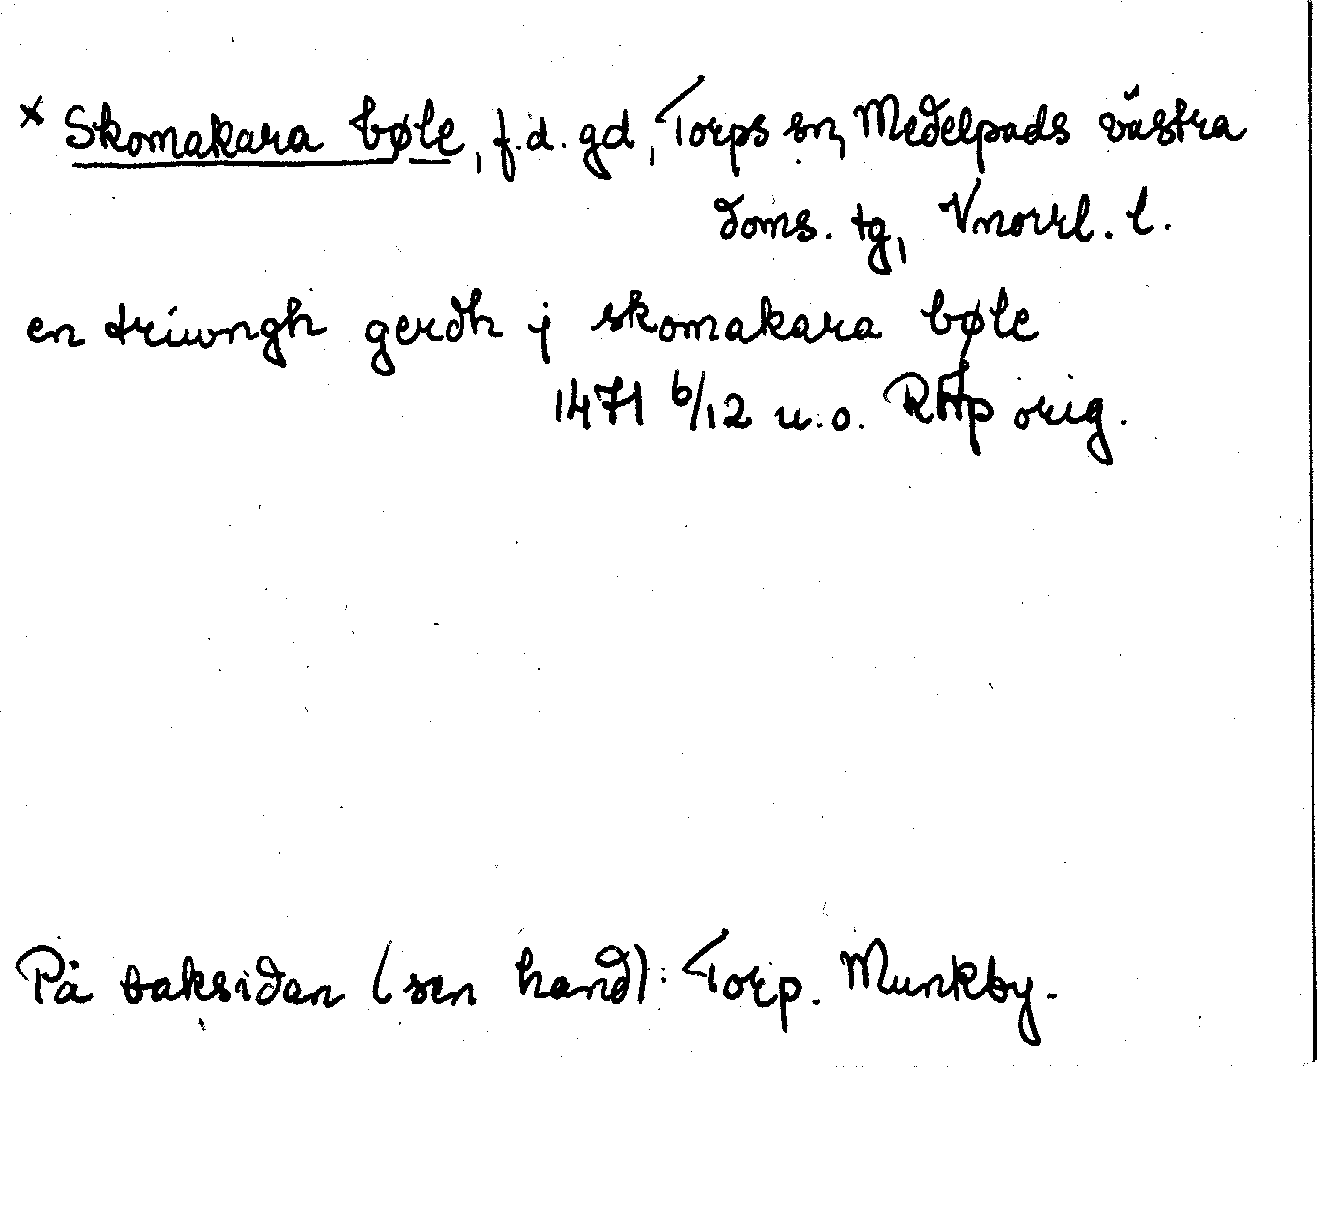 × Skomakara bøle, f.d. gd, Torps sn, Medelpads västra
doms. tg, Vnorrl. l.
en triwngh gerdh j skomakara bøle
1471 6/12 u.o. RAp orig.
På baksidan (sen hand): Torp. Munkby.